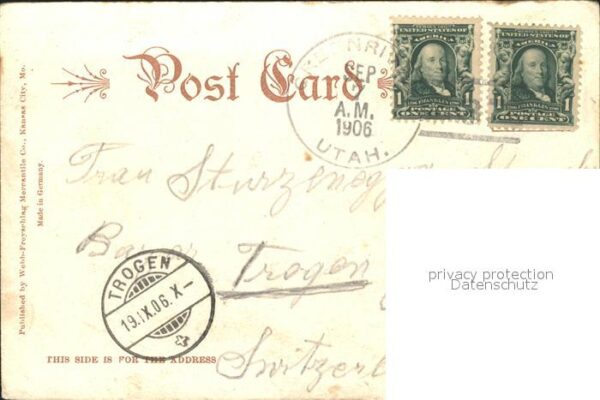 Post Card
SEP
A.M.
1906
UTAH.
POSTAGE
UNITED STATES OF
AMERICA
1 FRANKLIN 1
POSTAGE
ONE CENT
UNITED STATES OF
AMERICA
1 FRANKLIN 1
POSTAGE
ONE CENT
Published by Webb-Freyschlag Mercantile Co., Kansas City, Mo.
Made in Germany.
Frau Sturzenegg
Trogen
TROGEN
19.IX.06.X-
THIS SIDE IS FOR THE ADDRESS
Switzerl
privacy protection
Datenschutz